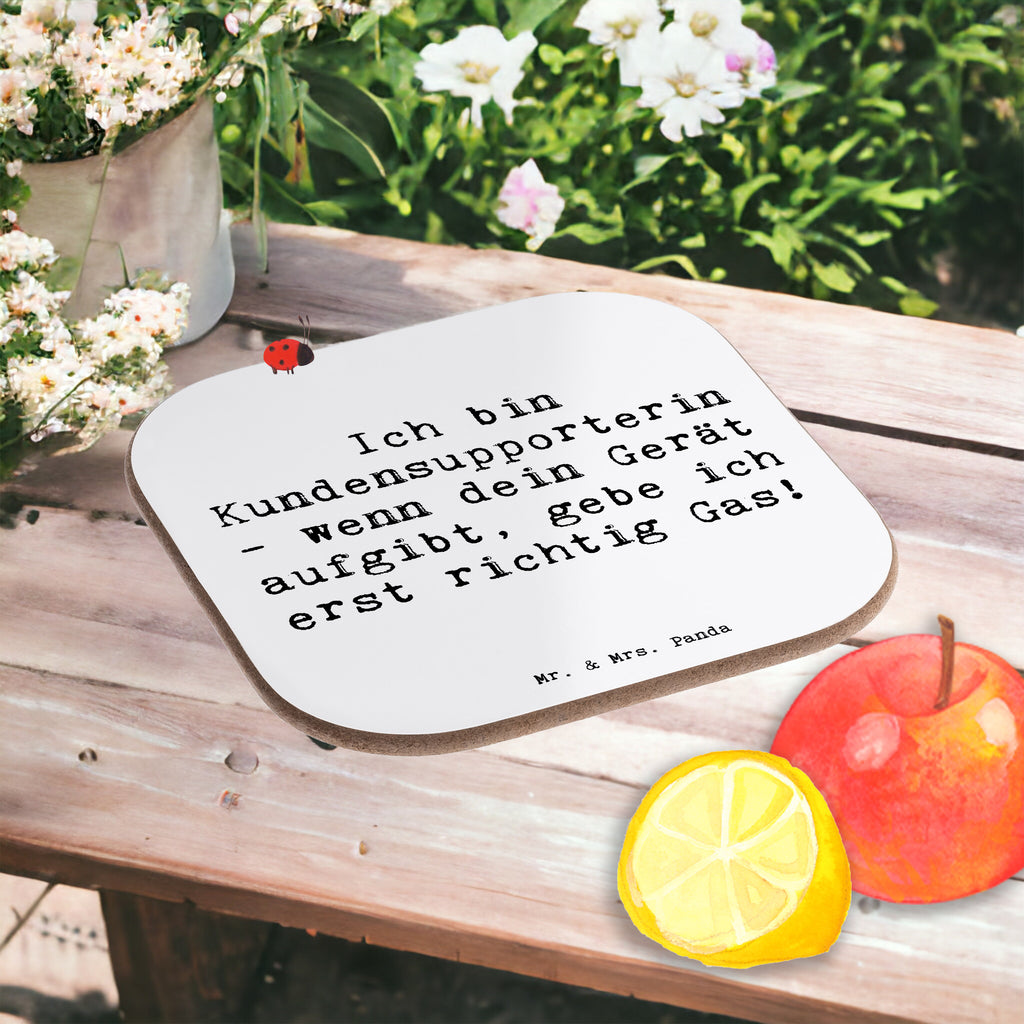 Ich bin
Kundensupporterin
- wenn dein Gerät
aufgibt, gebe ich
erst richtig Gas!
Mr. & Mrs. Panda